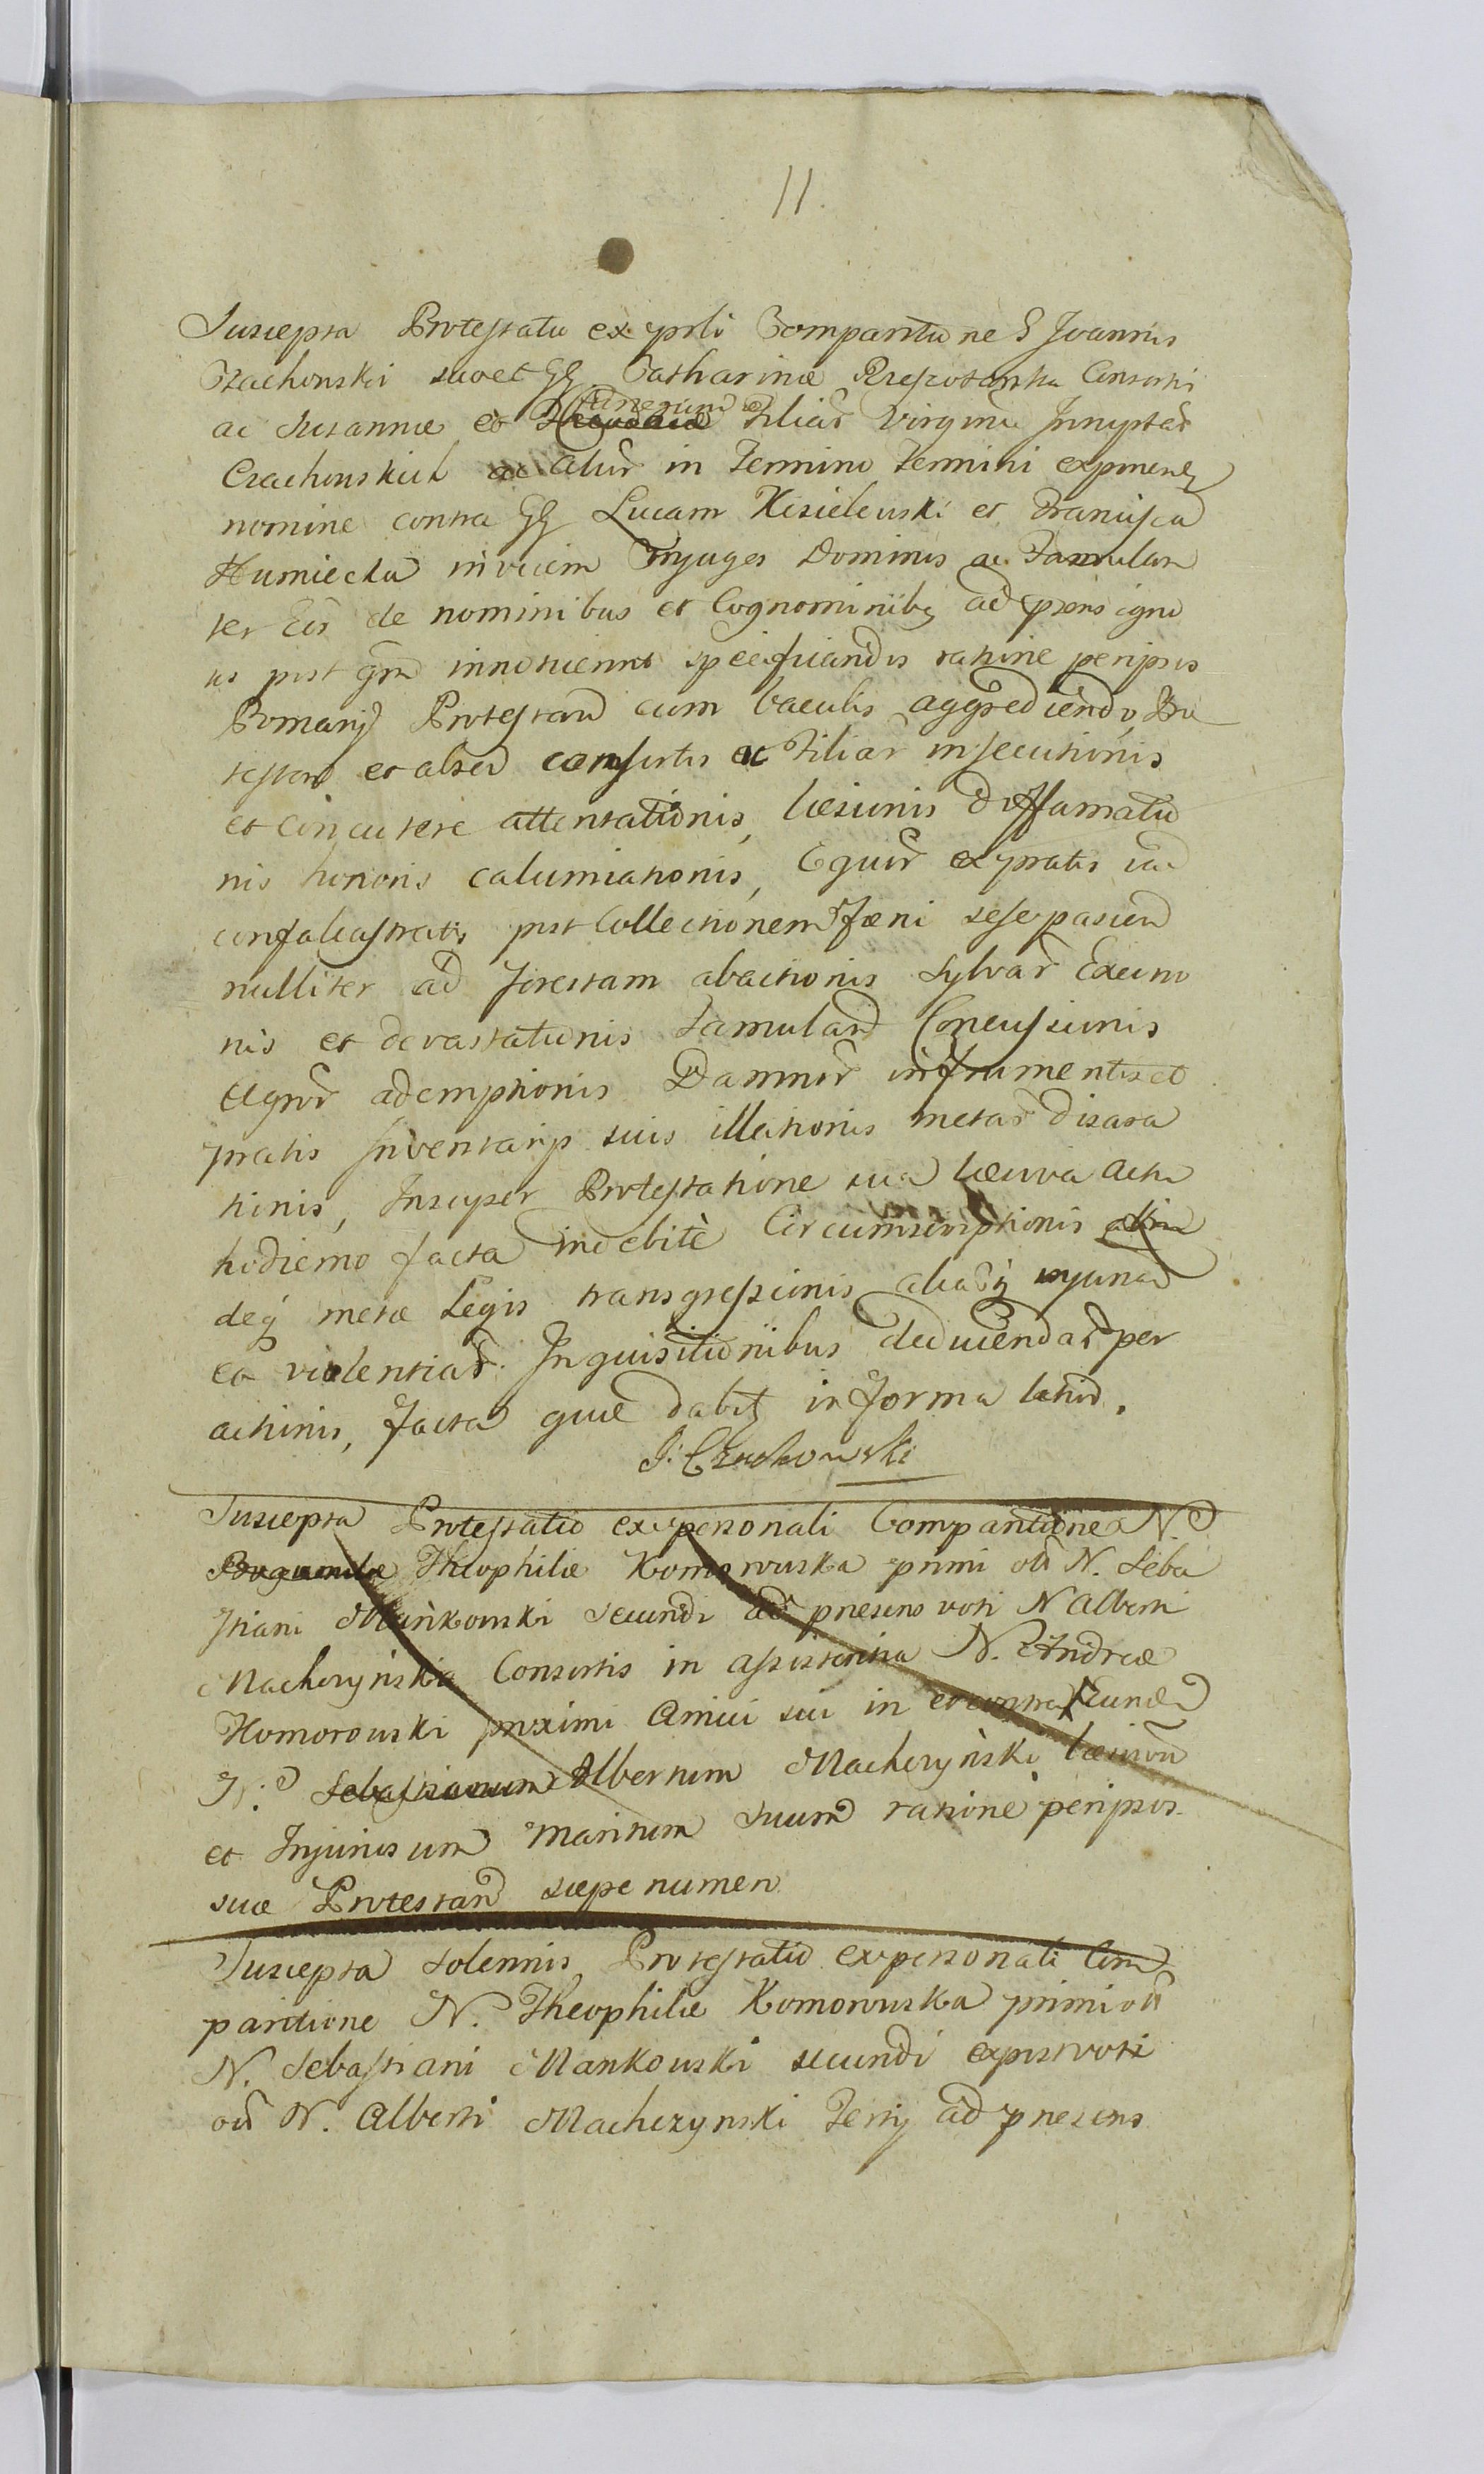 11.
Suscepta Protestatio ex prsli Comparitione G Joannis
Czachowski suo et GG. Catharinæ Consortis
ac Susannæ et Filiar Virginū Innuptar
Czachowskich ac alior in Termino Termini exprimend
nomine contra GG Lucam Kisielewski et Franciscā
Humiecka invicem Conjuges Dominos ac Famulan
ter Eis de nominibus et Cognominibq ad præns igno
tos post qm innotuerint specificandos ratione per ipsos
Protestan cum baculis aggrediendo, Pro
testan et alred consortis et Filiar insecutionis
et concutere attentationis, læsionis Diffamatio
nis honoris calumniationis, Equor ex pratis iam
confalcastratis post Collectionem Fæni sese pascen
nulliter ad Forestam abactionis Sylvar Excisio
nis et devastationis Famulard Concussionis
Eqror ademptionis Damnor in frumentis et
pratis Inventarys suis illationis metar disara
tionis, Insuper Protestatione sua læsiva Actu
hodierno facta indebitè Circumscriptionis
deq meræ Legis transgressionis aliarq injuriar
et violentiar Inquisitionibus deducendar per
actionis, facta quæ dabit in Forma latior.
J: Czachowski
Suscepta Protestatio ex personali Comparitione N.
Bogumilæ Theophilæ Komorowska primi oli N. Seba
stiani Mankowski Secundi ad præsens voti N Alberti
Machczyńskia Consortis in assistentia N. Andreæ
Komorowski proximi Amici sui in et contra eund
N. Sebastianum Albertum Machczyński læsivum
et Injuriosum Maritum Suum ratione per ipsos
suæ Protestan sæpe numero
Suscepta Solennis Protestatio ex personali Com
paritione N. Theophilæ Komorowska primi oli
N. Sebastiani Mankowski secundi ex post voti
oli N. Alberti Machczynski Terty ad præsens